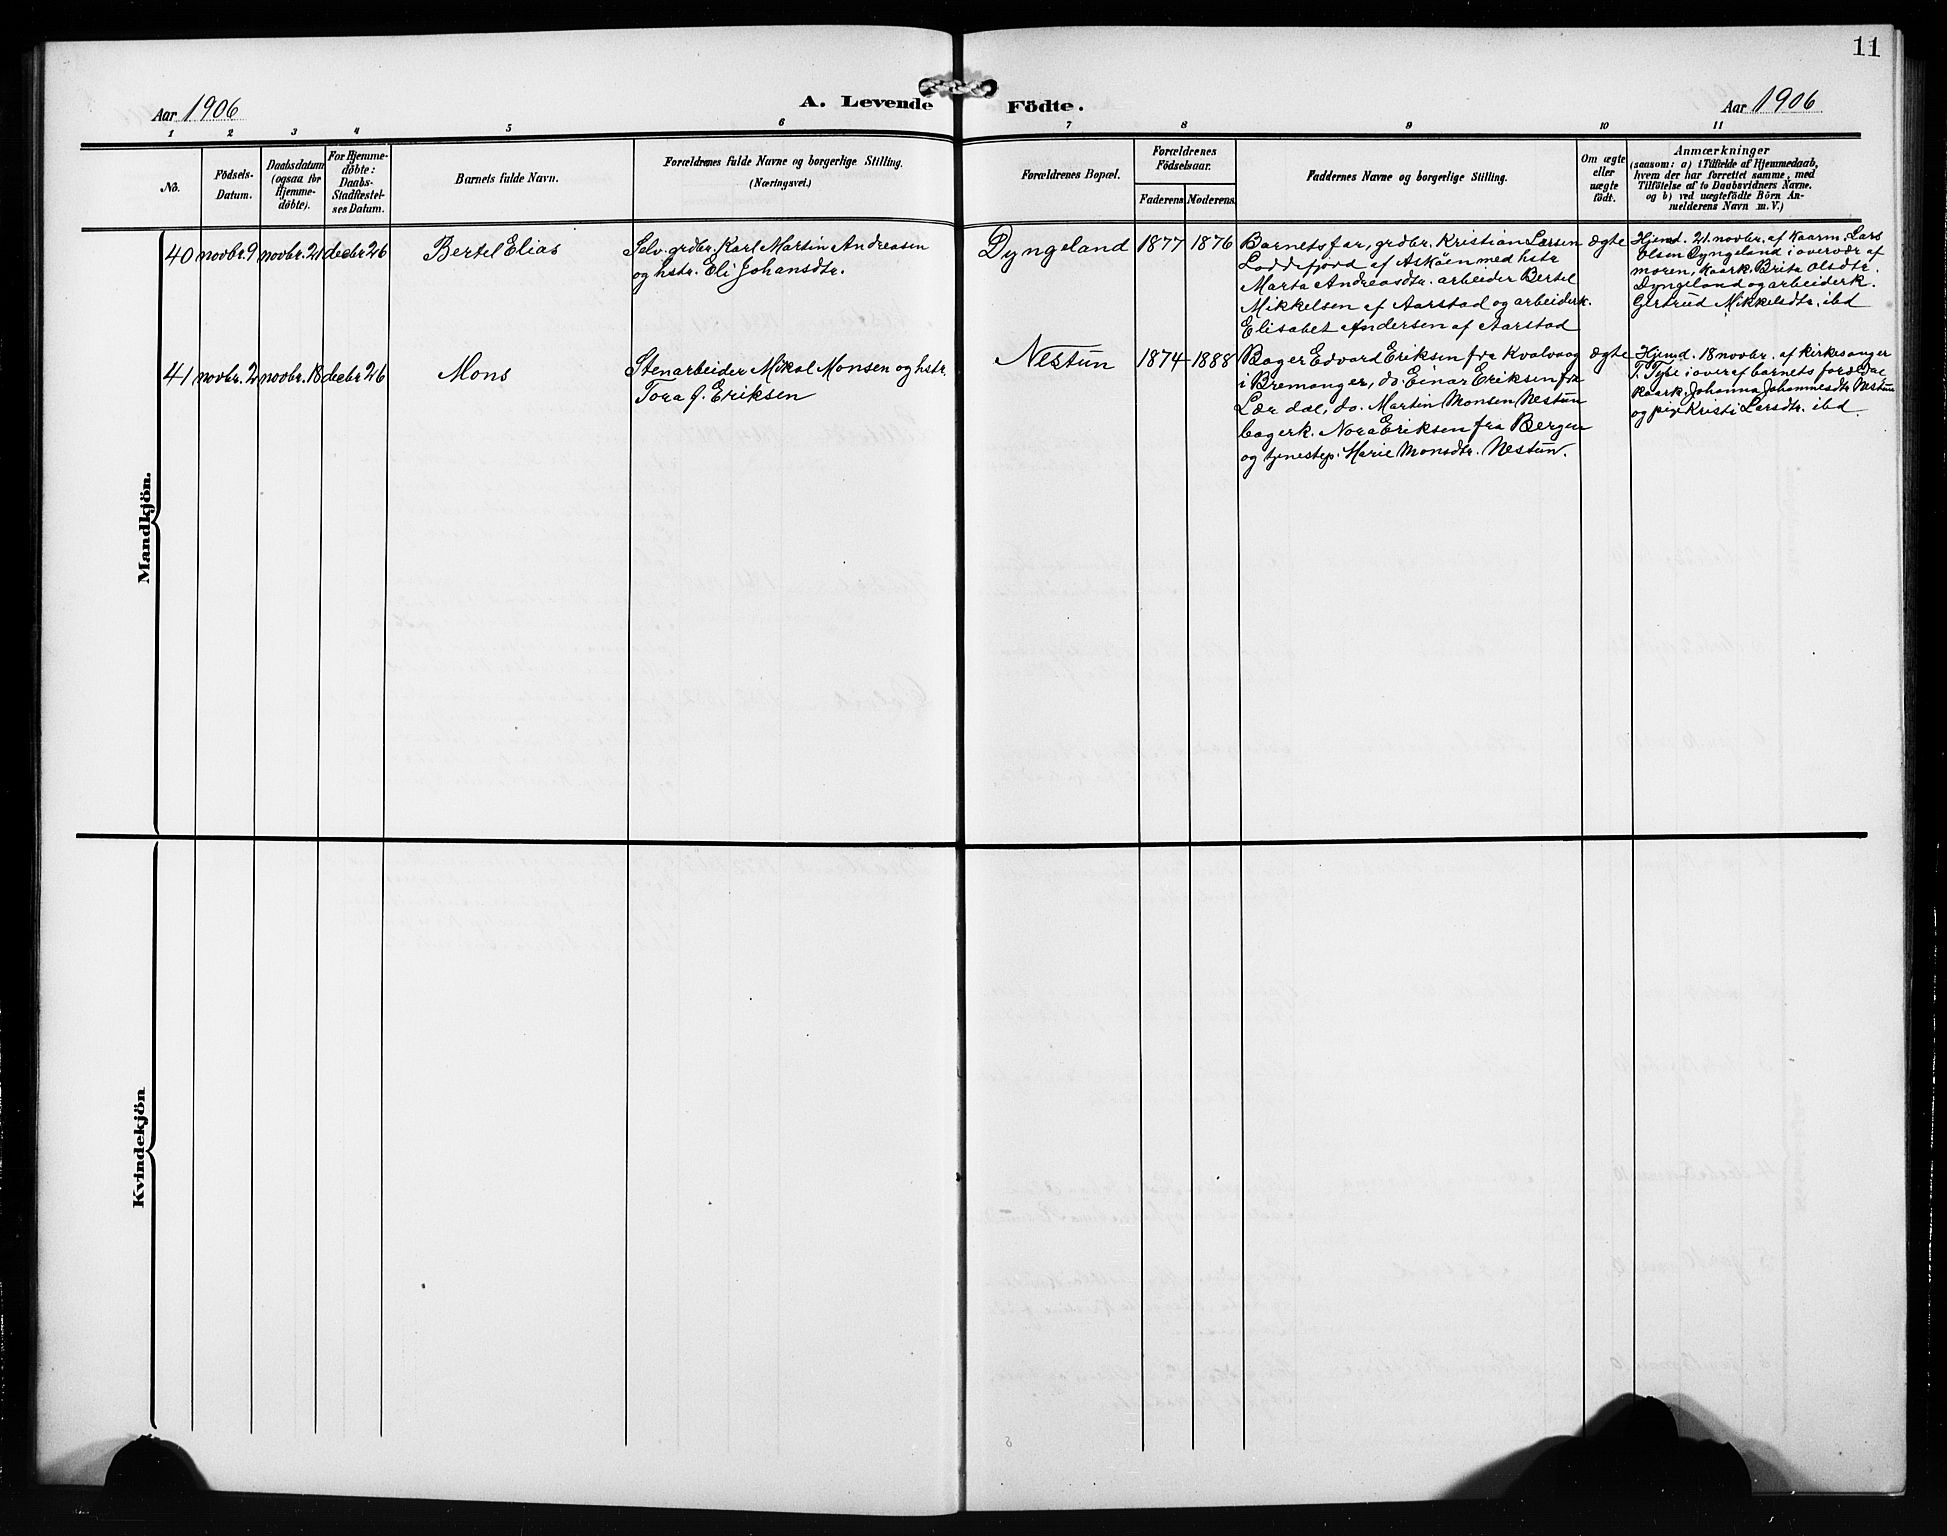 11
Aar 1906
A. Levende Födte.
Aar 1906
1 2 3 4 5 6 7 8 9 10 11
No.
Födsels-
Datum.
Daabsdatum
(ogsaa for
Hjemme-
döbte).
For Hjemme-
döbte:
Daabs-
Stadfæstel-
ses Datum.
Barnets fulde Navn.
Forældrenes fulde Navne og borgerlige Stilling.
(Næringsvei.)
Forældrenes Bopæl.
Forældrenes
Födselsaar.
Faderens
Moderens.
Faddernes Navne og borgerlige Stilling.
Om ægte
eller
uægte
födt.
Anmærkninger
(saasom: a) i Tilfælde af Hjemmedaab,
hvem der har forrettet samme, med
Tilföielse af to Daabsvidners Navne.
og b) ved uægtefödte Börn An-
melderens Navn m. V.)
Mandkjön.
40
novbr. 9
novbr. 21
decbr 26
Bertel Elias
Selv. grdbr. Karl Martin Andreasen
og hstr. Eli Johansdtr.
Dyngeland
1877
1876
Barnets far, grdbr. Kristian Larsen
Loddefjord af Asköen med hstr
Marta Andreasdtr. arbeider Bertel
Mikkelsen af Aarstad og arbeiderk.
Elisabet Andersen af Aarstad
ægte
Hjemd. 21. novbr. af kaarm. Lars
Olsen Dyngeland i overvær af
moren, kaark. Brita Olsdtr.
Dyngeland og arbeiderk.
Gjertrud Mikkelsdtr. ibd
41
novbr. 2
novbr. 18
decbr 26
Mons
Stenarbeider Mikal Monsen og hstr.
Tora J. Eriksen
Nestun
1874
1888
Bager Edvard Eriksen fra Kvalvaag
i Bremanger, do. Einar Eriksen fra
Lærdal, do. Martin Monsen Nestun
bagerk. Nora Eriksen fra Bergen
og tjenestep. Marie Monsdtr. Nestun.
ægte
Hjemd. 18 novbr. af kirkesanger
T. Tybe i over af barnets forældre
kaark. Johanna Johannesdtr Nestun
og pige Kristi Larsdtr. ibd.
Kvindekjön